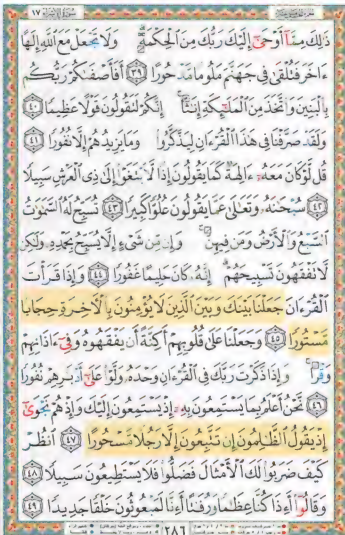 سورة الإسراء ١٧
ذَٰلِكَ مِمَّآ أَوْحَىٰٓ إِلَيْكَ رَبُّكَ مِنَ ٱلْحِكْمَةِ ۗ وَلَا تَجْعَلْ مَعَ ٱللَّهِ إِلَٰهًا
ءَاخَرَ فَتُلْقَىٰ فِى جَهَنَّمَ مَلُومًا مَّدْحُورًا ٣٩ أَفَأَصْفَىٰكُمْ رَبُّكُم
بِٱلْبَنِينَ وَٱتَّخَذَ مِنَ ٱلْمَلَٰٓئِكَةِ إِنَٰثًا ۚ إِنَّكُمْ لَتَقُولُونَ قَوْلًا عَظِيمًا ٤٠
وَلَقَدْ صَرَّفْنَا فِى هَٰذَا ٱلْقُرْءَانِ لِيَذَّكَّرُوا۟ وَمَا يَزِيدُهُمْ إِلَّا نُفُورًا ٤١
قُل لَّوْ كَانَ مَعَهُۥٓ ءَالِهَةٌ كَمَا يَقُولُونَ إِذًا لَّٱبْتَغَوْا۟ إِلَىٰ ذِى ٱلْعَرْشِ سَبِيلًا
٤٢ سُبْحَٰنَهُۥ وَتَعَٰلَىٰ عَمَّا يَقُولُونَ عُلُوًّا كَبِيرًا ٤٣ تُسَبِّحُ لَهُ ٱلسَّمَٰوَٰتُ
ٱلسَّبْعُ وَٱلْأَرْضُ وَمَن فِيهِنَّ ۚ وَإِن مِّن شَىْءٍ إِلَّا يُسَبِّحُ بِحَمْدِهِۦ وَلَٰكِن
لَّا تَفْقَهُونَ تَسْبِيحَهُمْ ۗ إِنَّهُۥ كَانَ حَلِيمًا غَفُورًا ٤٤ وَإِذَا قَرَأْتَ
ٱلْقُرْءَانَ جَعَلْنَا بَيْنَكَ وَبَيْنَ ٱلَّذِينَ لَا يُؤْمِنُونَ بِٱلْءَاخِرَةِ حِجَابًا
مَّسْتُورًا ٤٥ وَجَعَلْنَا عَلَىٰ قُلُوبِهِمْ أَكِنَّةً أَن يَفْقَهُوهُ وَفِىٓ ءَاذَانِهِمْ
وَقْرًا ۚ وَإِذَا ذَكَرْتَ رَبَّكَ فِى ٱلْقُرْءَانِ وَحْدَهُۥ وَلَّوْا۟ عَلَىٰٓ أَدْبَٰرِهِمْ نُفُورًا
٤٦ نَّحْنُ أَعْلَمُ بِمَا يَسْتَمِعُونَ بِهِۦٓ إِذْ يَسْتَمِعُونَ إِلَيْكَ وَإِذْ هُمْ نَجْوَىٰٓ
إِذْ يَقُولُ ٱلظَّٰلِمُونَ إِن تَتَّبِعُونَ إِلَّا رَجُلًا مَّسْحُورًا ٤٧ ٱنظُرْ
كَيْفَ ضَرَبُوا۟ لَكَ ٱلْأَمْثَالَ فَضَلُّوا۟ فَلَا يَسْتَطِيعُونَ سَبِيلًا ٤٨
وَقَالُوٓا۟ أَءِذَا كُنَّا عِظَٰمًا وَرُفَٰتًا أَءِنَّا لَمَبْعُوثُونَ خَلْقًا جَدِيدًا ٤٩
٢٨٦